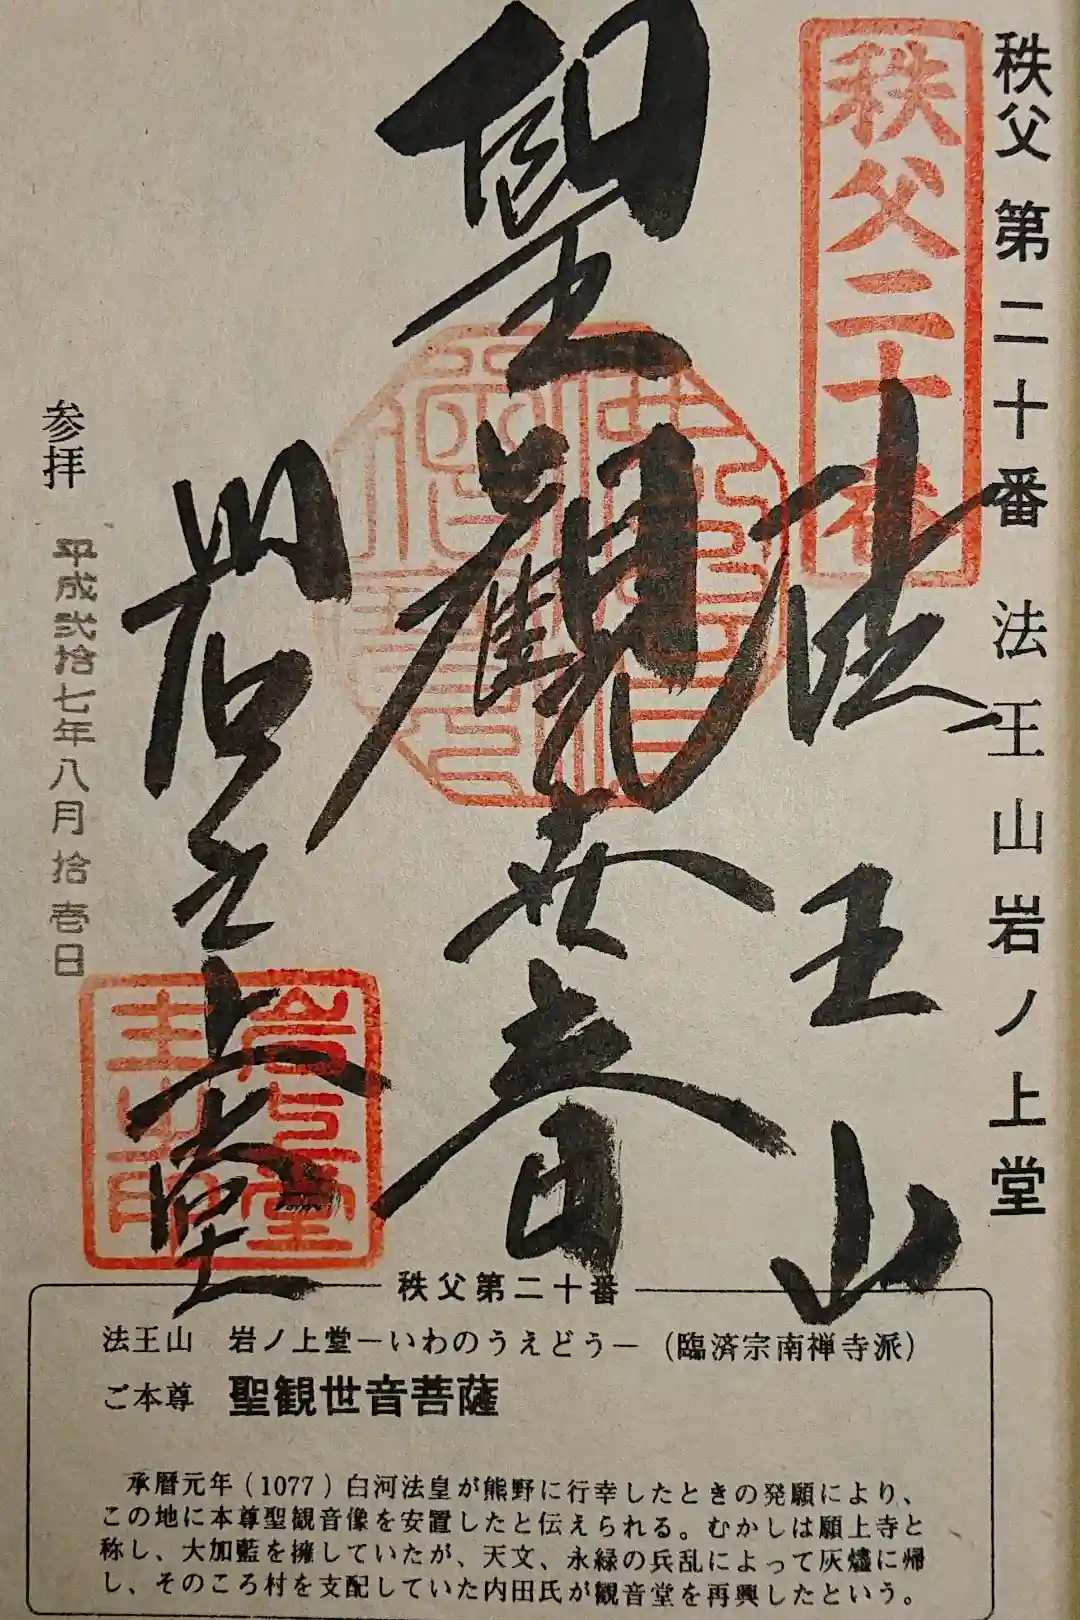 秩父第二十番 法王山岩ノ上堂
秩父二十番
法王山
聖観世音
岩之上堂
参拝 平成弐拾七年八月拾壱日
岩之上堂
秩父第二十番
法王山 岩ノ上堂―いわのうえどう―(臨済宗南禅寺派)
ご本尊 聖観世音菩薩
承暦元年(1077)白河法皇が熊野に行幸したときの発願により、
この地に本尊聖観音像を安置したと伝えられる。むかしは願上寺と
称し、大加藍を擁していたが、天文、永緑の兵乱によって灰燼に帰
し、そのころ村を支配していた内田氏が観音堂を再興したという。